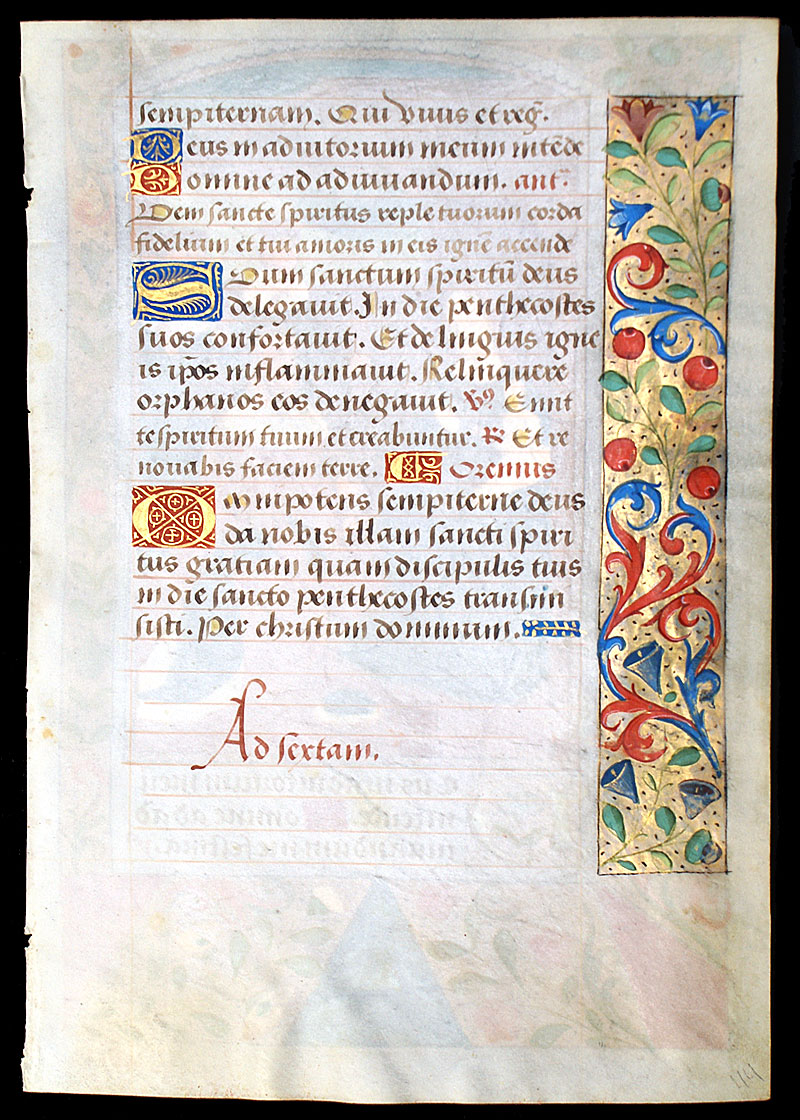 sempiternam. Qui vivis et reg̃.
Deus in adiutorium meum intẽde
Domine ad adiuuandum. ant̃.
Veni sancte spiritus reple tuorum corda
fidelium et tui amoris in eis ignẽ accende
Suum sanctum spiritũ deus
delegauit. In die penthecostes
suos confortauit. Et de linguis igne
is ip̃os inflammauit. Relinquere
orphanos eos denegauit. V̷ Emit
te spiritum tuum et creabuntur. R̷ Et re
nouabis faciem terre. Oremus
Omnipotens sempiterne deus
da nobis illam sancti spiri
tus gratiam quam discipulis tuis
in die sancto penthecostes transmi
sisti. Per christum dominum.
Ad sextam.